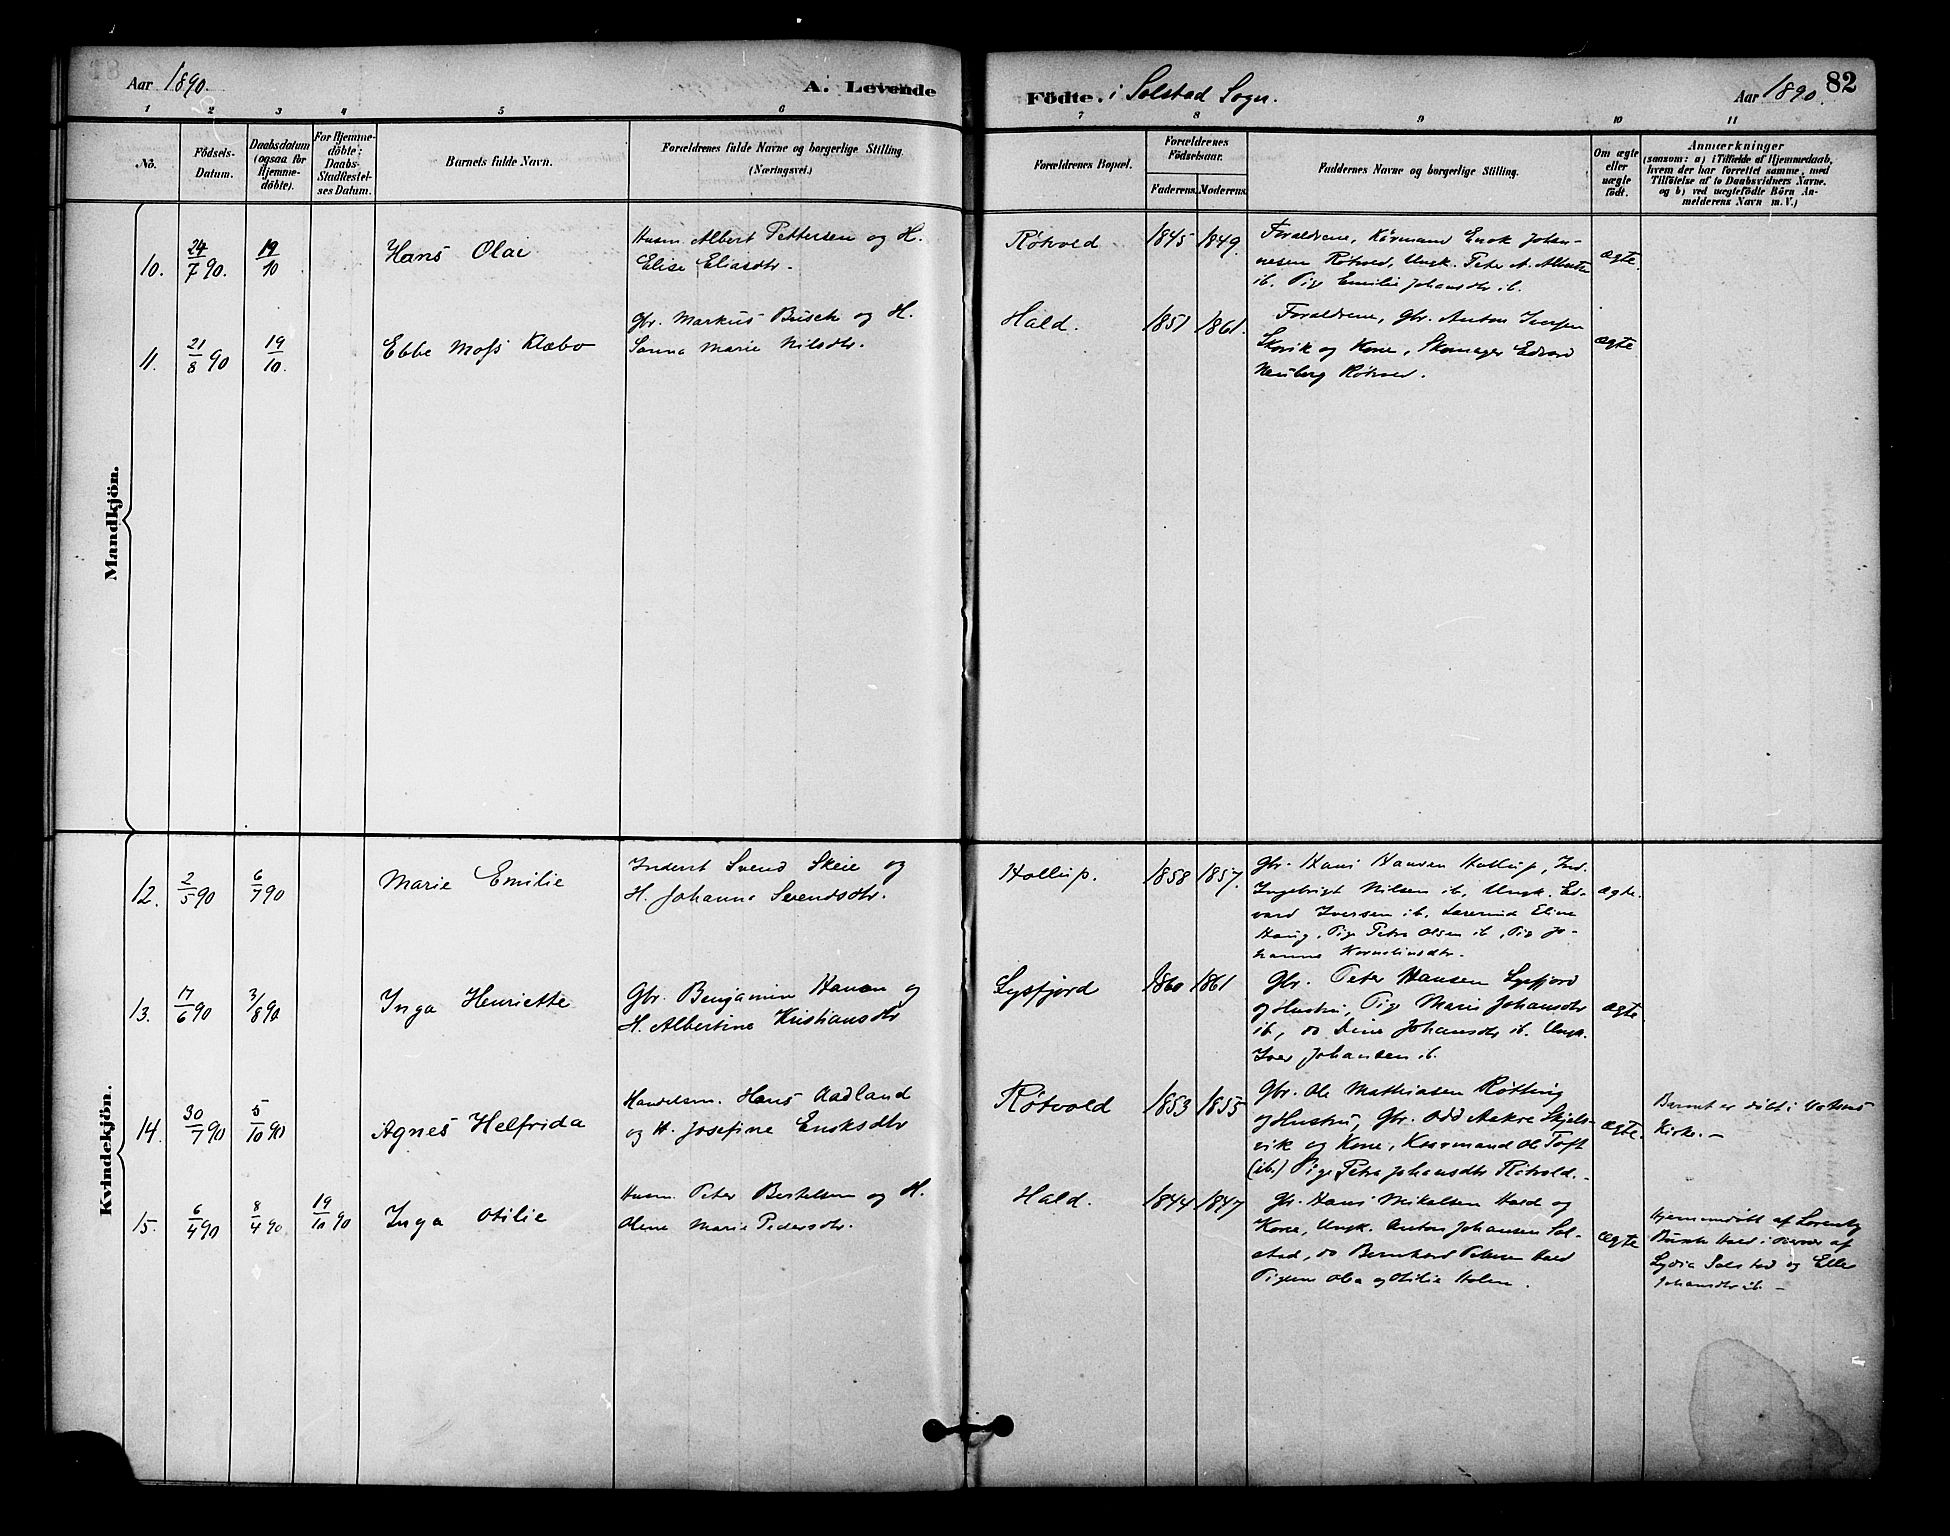 Aar 1890.
A. Levende
Födte. i Solstad Sogn.
Aar 1890.
82
1 2 3 4 5 6 7 8 9 10 11
No.
Födsels-
Datum.
Daabsdatum
(ogsaa for
Hjemme-
döbte).
For Hjemme-
döbte:
Daabs-
Stadfestel-
ses Datum.
Barnets fulde Navn.
Forældrenes fulde Navne og borgerlige Stilling.
(Næringsvei.)
Forældrenes Bopæl.
Forældrenes
Födselsaar.
Faderens. Moderens.
Faddernes Navne og borgerlige Stilling.
Om ægte
eller
uægte
födt.
Anmærkninger
(saasom: a) i Tilfælde af Hjemmedaab,
hvem der har forrettet samme, med
Tilföielse af to Daabsvidners Navne.
og b) ved uægtefödte Börn An-
melderens Navn m. V.)
Mandkjön.
10. 24/7 90. 19/10 Hans Olai
Husm. Albert Pettersen og H.
Elise Eliasdtr.
Røtvold 1845 1849.
Forældrene, Kårmand Enok Johan-
nesen Røtvold, Ungk. Peter A. Alberts
ib. Pige Emilie Johansdtr ib.
ægte.
11. 21/8 90 19/10. Ebbe Moss Klæbo
Gbr. Markus Busch og H.
Sanna Marie Nilsdtr.
Hald. 1851 1861.
Forældrene, Gbr. Anton Iversen
Skovik og Kone, Skomager Edvard
Røtvold.
ægte
Kvindekjön.
12. 2/5 90 6/7 90 Marie Emilie
Inderst Svend Skeie og
H. Johanna Svendsdtr.
Hollup. 1858 1857.
Gbr. Hans Hansen Hollup, Ind.
Ingebrigt Nilsen ib, Ungk. Ed-
vard Iversen ib. Lærerinde Eline
Haug, Pige Petra Olsen ib, Pig Jo-
hanna Korneliusdtr.
ægte.
13. 17/6 90 3/8 90 Inga Henriette
Gbr. Benjamin Hansen og
H. Albertine Kristiansdtr
Lysfjord 1860 1861
Gbr. Peter Hansen Lysfjord
og Hustru, Pige Marie Johansdtr
ib, do Dina Johansdtr ib. Ungk.
Iver Johansen ib.
ægte.
14. 30/7 90 5/10 90 Agnes Helfrida
Handelsm. Hans Aadland
og H. Josefine Enoksdtr
Røtvold 1853 1855
Gbr. Ole Mathiasen Røtting
og Hustru, Gbr. Odd Aakre Skjels-
vik og Kone, Kaarmand Ole Toft
(ib.) Pige Petra Johansdtr Røtvold.
ægte.
Barnet er døbt i
Kirke.
15. 6/4 90 8/4 90 19/10 90 Inga Otilie
Husm. Peter Bertelsen og H.
Olene Marie Pedersdtr.
Hald. 1844 1847
Gbr. Hans Mikalsen Hald og
Kone, Ungk. Anton Johansen Sol-
stad, do Bernhard Petersen Hald
Pigerne Ola og Otilia Holm.
ægte
Hjemmedøbt af Lorents
Busch Hald i nærvær af
Lydia Solstad og Ellen
Johansdtr ib.